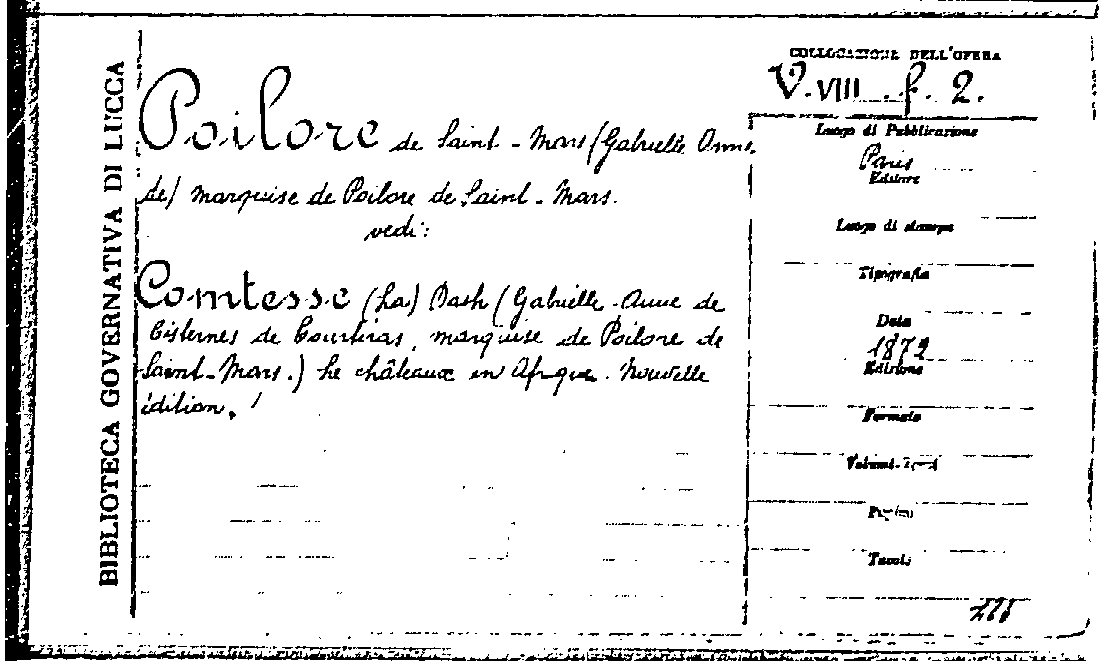 BIBLIOTECA GOVERNATIVA DI LUCCA
Poilore de Saint-Mars (Gabrielle Anne
de) marquise de Poilore de Saint-Mars.
vedi:
Comtesse (La) Dash (Gabrielle-Anne de
Cisternes de Courtiras, marquise de Poilore de
Saint-Mars.) Le châteaux en Afrique. Nouvelle
édition.
COLLOCAZIONE DELL'OPERA
V. VIII. f. 2.
Luogo di Pubblicazione
Paris
Editore
Luogo di stampa
Tipografia
Data
1872
Edizione
Formato
Volumi
Pagine
Tavole